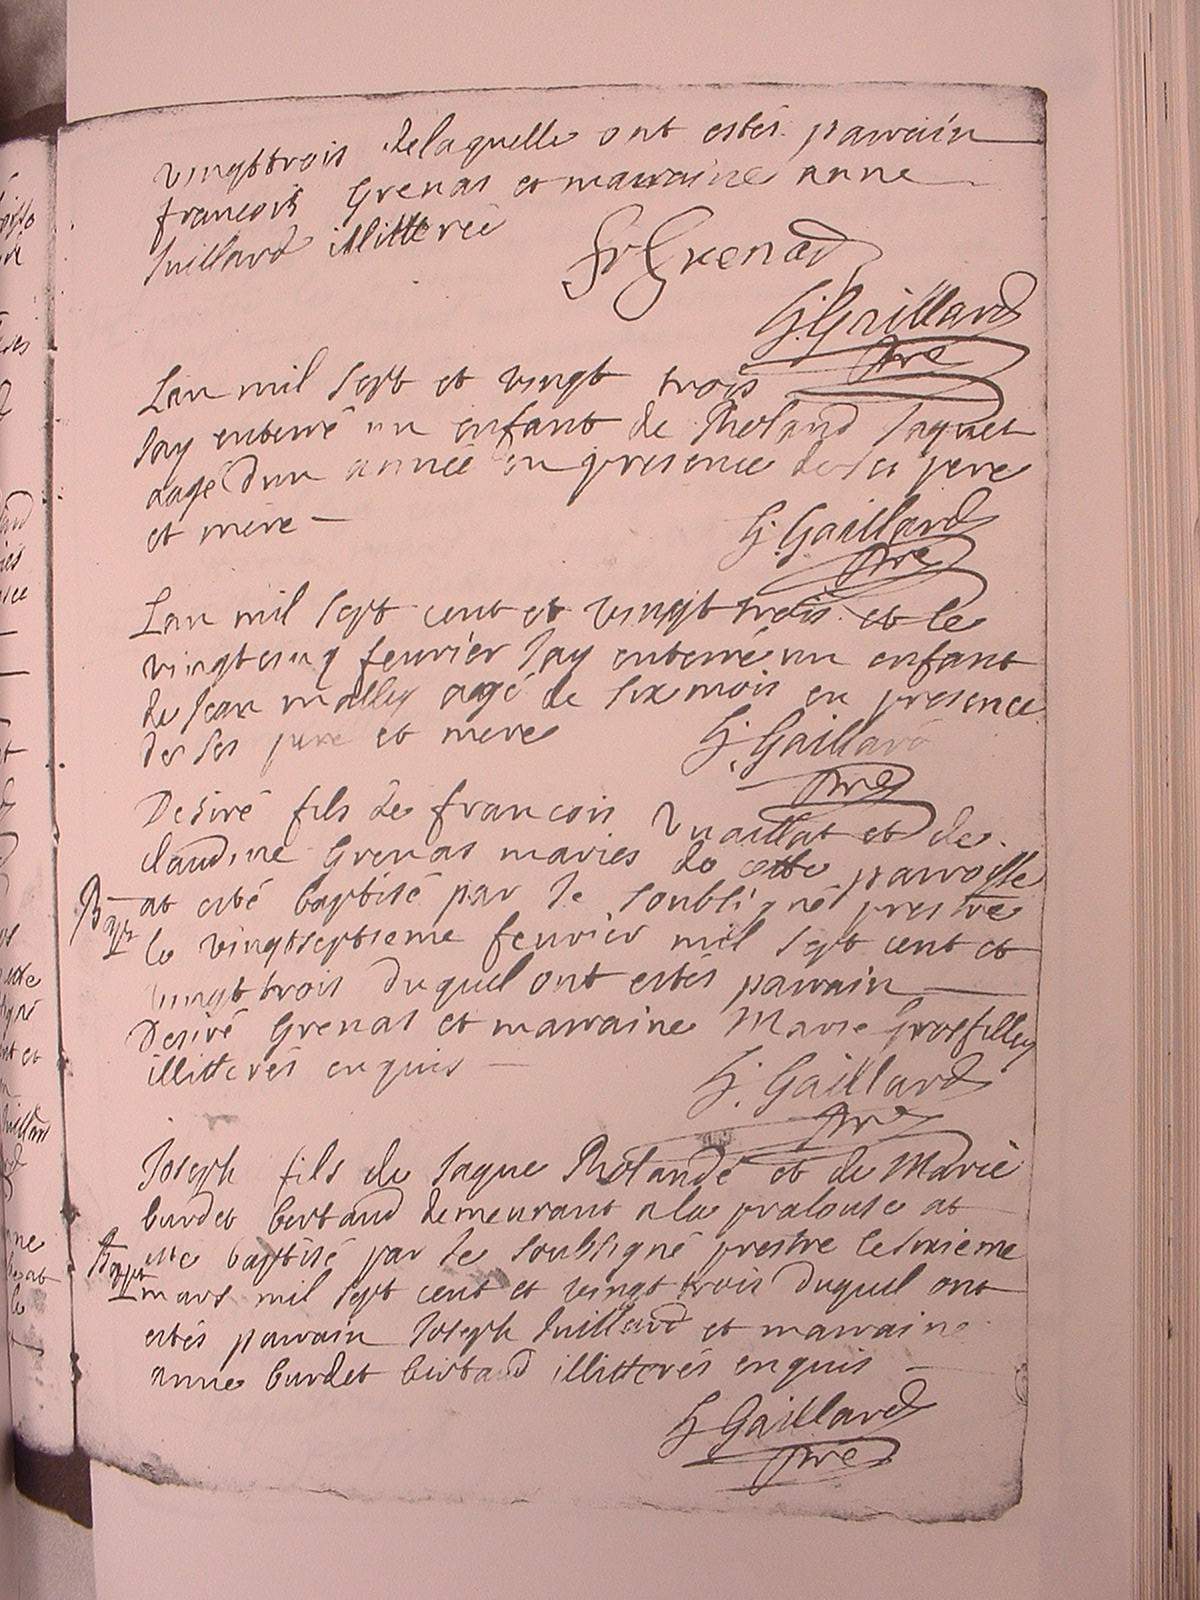 vingttrois delaquelle ont estés parrain
francois Grenas et marraine anne
Juillard illitterée
fr Grenad
G. Gaillard
pre
Lan mil sept et vingt trois
Jay enterré un enfant de Roland Jaquet
aagé dun année en presence de ses pere
et mere
G. Gaillard
pre
Lan mil sept cent et vingt trois et le
vingtcinq feurier Jay enterré un enfant
de Jean malley aagé de six mois en presence
de ses pere et mere
G. Gaillard
pre
Desiré fils de francois Vuaillat et de
claudine Grenas maries de cette parroisse
Bapt at esté baptisé par le soubsigné prestre
le vingtseptieme feurier mil sept cent et
vingt trois duquel ont estés parrain
Desiré Grenas et marraine Marie Grosfilley
illitterés enquis
G. Gaillard
pre
Joseph fils de Jaque Rolandé et de Marie
burdet bertaud demeurant a la pralouse at
Bapt esté baptisé par le soubsigné prestre le sixieme
mars mil sept cent et vingt trois duquel ont
estés parrain Joseph Juillard et marraine
anne burdet bertaud illitterés enquis
G Gaillard
pre